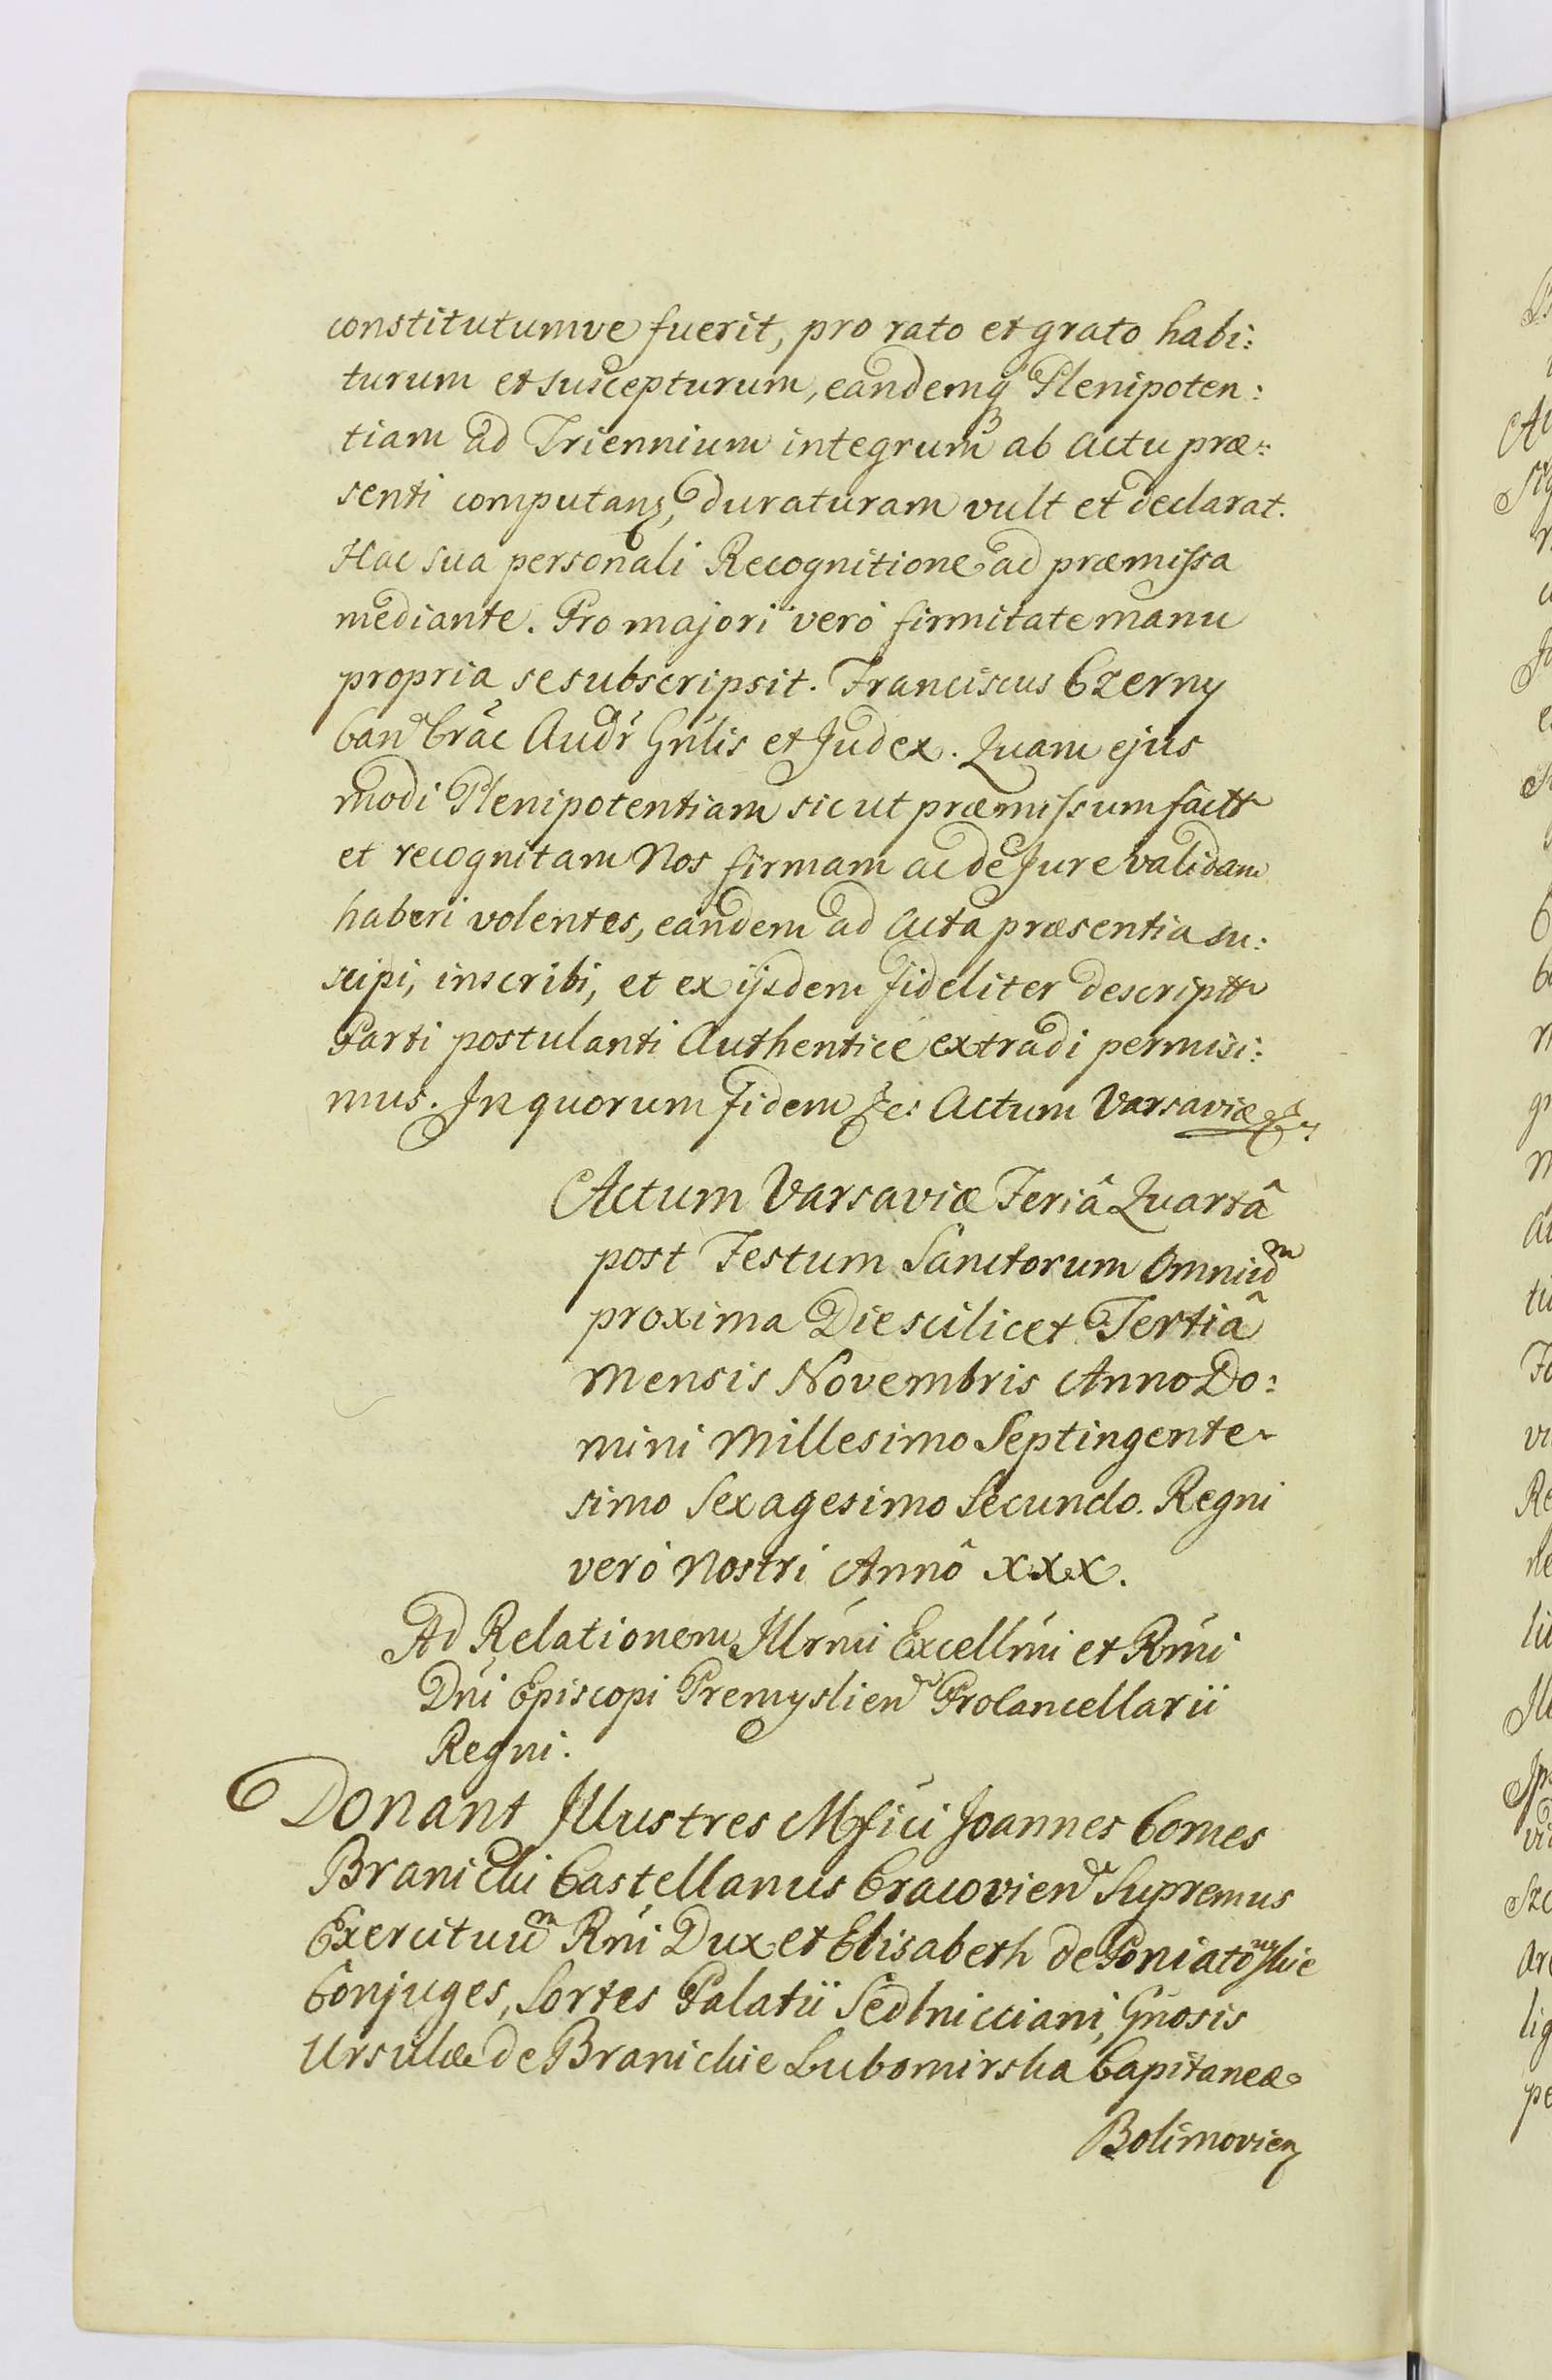 constitutumve fuerit, pro rato et grato habi:
turum et suscepturum, eandemq3 Plenipoten:
tiam ad Triennium integrum ab actu præ:
senti computanz, duraturam vult et declarat.
Hac sua personali Recognitione ad præmissa
mediante. Pro majori verò firmitate manu
propria se subscripsit. Franciscus Czerny
Can Crac Audr Gnlis et Judex. Quam ejus
modi Plenipotentiam sic ut præmissum factt
et recognitam Nos firmam ac de Jure validam
haberi volentes, eandem ad Acta præsentia su:
scipi, inscribi, et ex ijsdem fideliter descriptt
Parti postulanti Authenticè extradi permisi:
mus. In quorum fidem &c: Actum Varsaviæ &
Actum Varsaviæ Feriâ Quartâ
post Festum Sanctorum Omnium
proxima Die scilicet Tertiâ
Mensis Novembris Anno Do:
mini Millesimo Septingente-
simo Sexagesimo Secundo. Regni
verò Nostri Annô XXX.
Ad Relationem Illrmi Excellmi et Rmi
Dni Episcopi Premyslien Procancellarii
Regni.
Donant Illustres Mfici Joannes Comes
Branicki Castellanus Cracovien Supremus
Exercituum Rni Dux et Elisabeth de Poniatowskie
Conjuges, Sortes Palatii Sedlnicciani, Gnosis
Ursulæ de Branickie Lubomirska Capitaneæ
Bolimovien